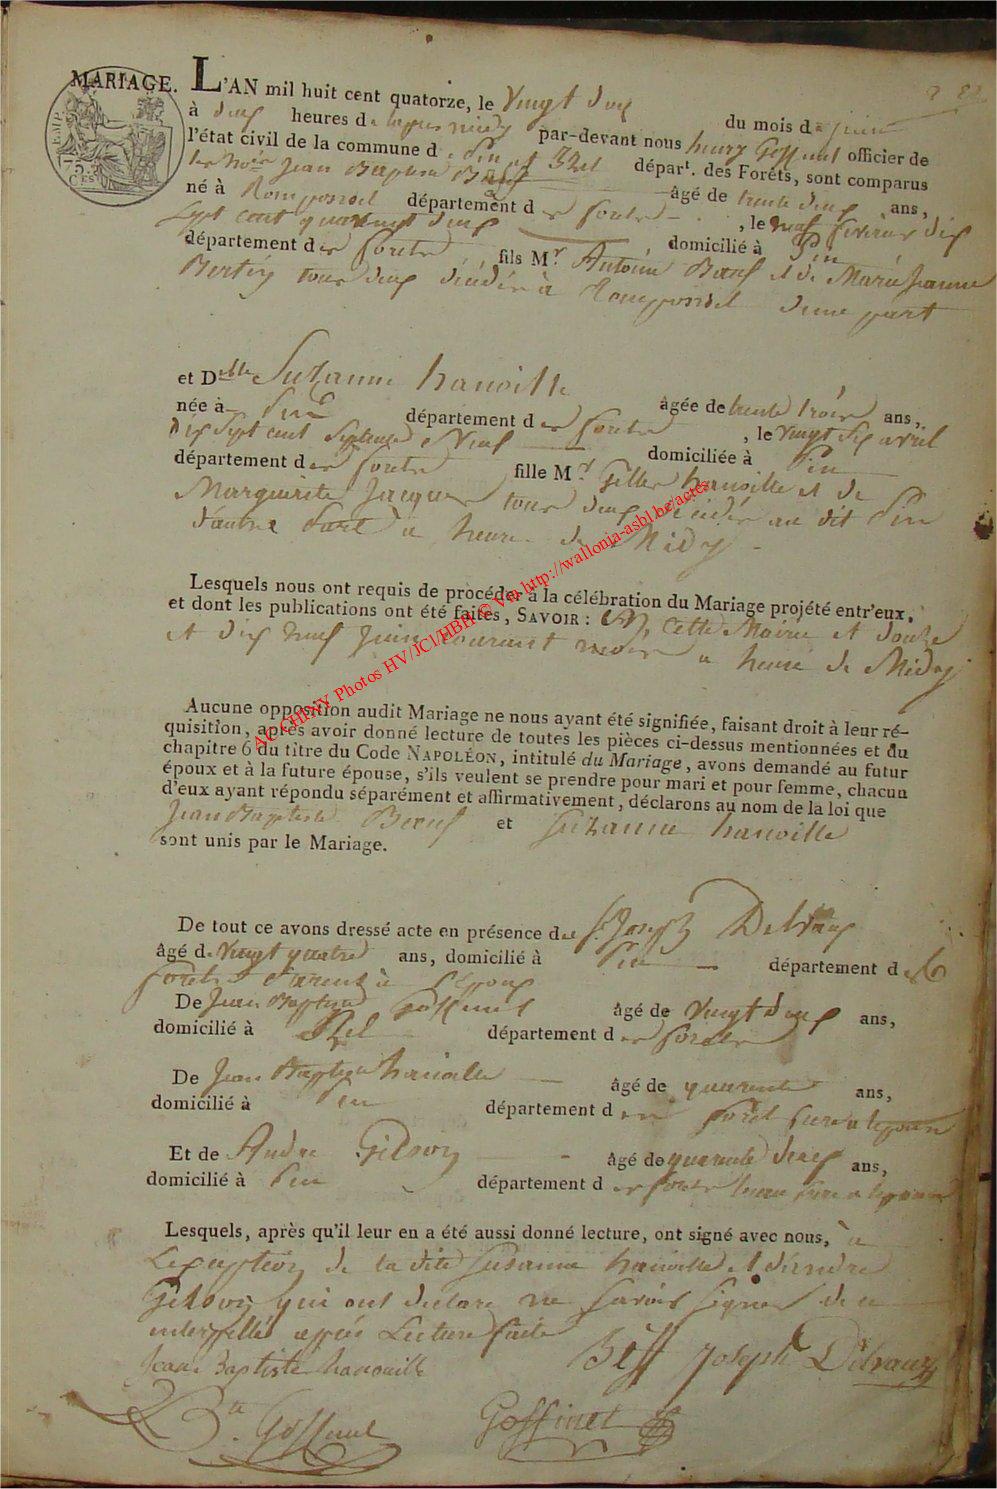 MARIAGE. L'AN mil huit cent quatorze, le Vingt deux
du mois de juin
à deux heures de
par-devant nous henry Goffinet officier de
l'état civil de la commune de Pin et Izel
départ. des Forêts, sont comparus
Jean Baptiste Bœuf
âgé de trente deux ans,
né à Romponcel département des foretz
, le neuf fevrier dix
sept cent quatrevingt deux
, domicilié à Pin
département des foretz , fils Mr. Antoine Bœuf et de Marie Jeanne
Bertin tous deux décédés à Romponcel d'une part
et Delle Suzanne hanoille
née à Pin département des foretz
âgée de trente trois ans,
, le vingt six avril
Dix Sept cent Septente et Neuf
domiciliée à Pin
département des foretz fille Mr. Gilles hanoille et de
Marguerite Jacques tous deux décédés au dit Pin
d'autre Part à heure de Midy
Lesquels nous ont requis de procéder à la célébration du Mariage projété entr'eux,
et dont les publications ont été faites, SAVOIR : En cette Mairie et douze
et dix neuf Juin courant a heure de Midy
Aucune opposition audit Mariage ne nous ayant été signifiée, faisant droit à leur ré-
quisition, après avoir donné lecture de toutes les pièces ci-dessus mentionnées et du
chapitre 6 du titre du Code NAPOLÉON, intitulé du Mariage, avons demandé au futur
époux et à la future épouse, s'ils veulent se prendre pour mari et pour femme, chacun
d'eux ayant répondu séparément et affirmativement, déclarons au nom de la loi que
Jean Baptiste Bœuf et Suzanne hanoille
sont unis par le Mariage.
De tout ce avons dressé acte en présence de Joseph Delvaux
âgé de vingt quatre ans, domicilié à Pin département de
foretz
De Jean Baptiste Goffinet âgé de vingt deux ans,
domicilié à Izel département des foretz
De Jean Baptiste hanoille âgé de quarente ans,
domicilié à Pin département de
Et de Andre Gilson âgé de quarente deux ans,
domicilié à Pin département des foretz
Lesquels, après qu'il leur en a été aussi donné lecture, ont signé avec nous, à
Lexception de la dite Susanne hanoille et d'andre
Gilson qui ont declare ne savoir signer de ce
interpellés après Lecture faite
Jean Baptiste hanouille Beff Joseph Delvaux
Goffinet Goffinet
AC CHINY Photos HV/JCl/HBH © Via http://wallonia-asbl.be/actes